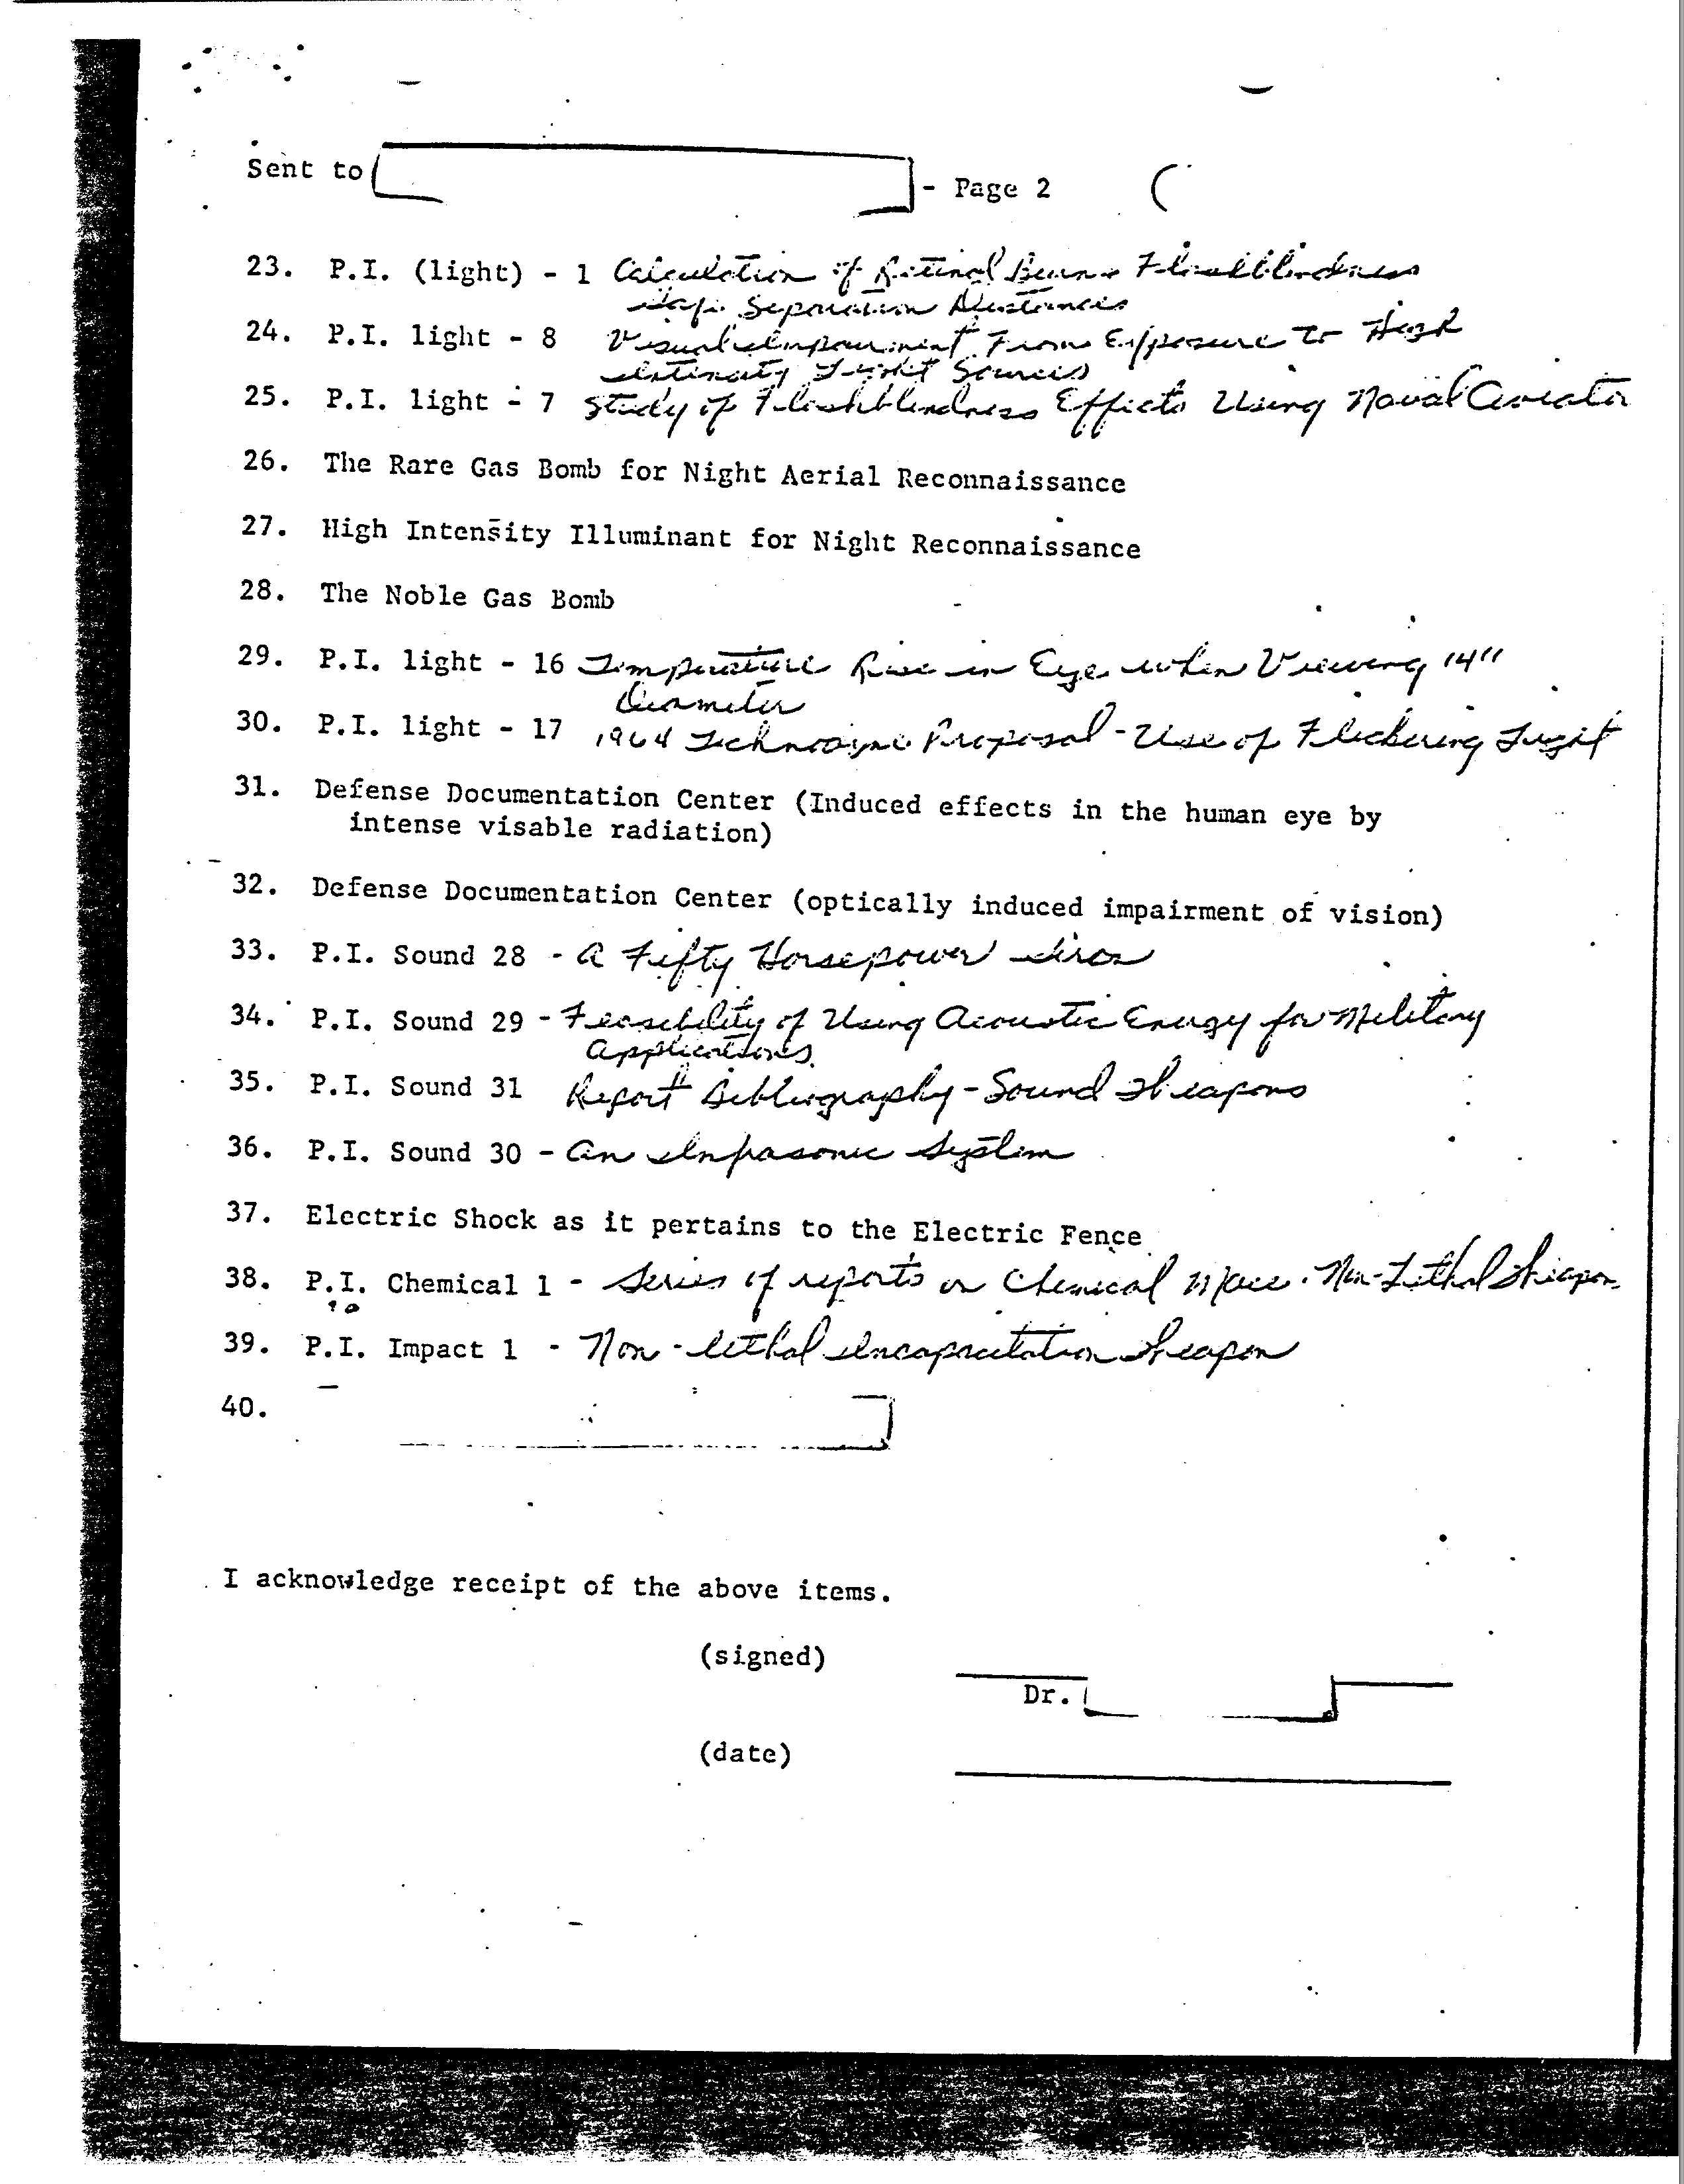 Sent to - Page 2
23. P.I. (light) - 1 Calculation of Retinal Burn & Flashblindness
Safe Separation Distances
24. P.I. light - 8 Visual Impairment From Exposure to High
Intensity Light Sources
25. P.I. light - 7 Study of Flashblindness Effects Using Naval Aviator
26. The Rare Gas Bomb for Night Aerial Reconnaissance
27. High Intensity Illuminant for Night Reconnaissance
28. The Noble Gas Bomb
29. P.I. light - 16 Temperature Rise in Eye when Viewing
Diameter
30. P.I. light - 17 1964 Proposal - Use of Flickering Light
31. Defense Documentation Center (Induced effects in the human eye by
intense visable radiation)
32. Defense Documentation Center (optically induced impairment of vision)
33. P.I. Sound 28 - A Fifty Horsepower Siren
34. P.I. Sound 29 - Feasibility of Using Acoustic Energy for Military
Applications.
35. P.I. Sound 31 Report Bibliography - Sound Weapons
36. P.I. Sound 30 - An Infrasonic System
37. Electric Shock as it pertains to the Electric Fence
38. P.I. Chemical 1 - Series of reports on Chemical Mace. Non-Lethal Weapon
39. P.I. Impact 1 - Non-lethal Incapacitation Weapon
40.
I acknowledge receipt of the above items.
(signed)
Dr.
(date)